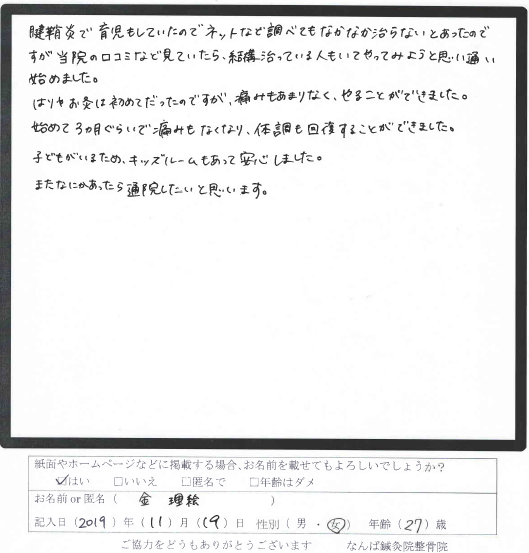 腱鞘炎で育児もしていたのでネットなど調べてもなかなか治らないとあったので
すが当院の口コミなど見ていたら、結構治っている人もいてやってみようと思い通い
始めました。
はりやお灸は初めてだったのですが、痛みもあまりなく、やることができました。
始めて3カ月ぐらいで痛みもなくなり、体調も回復することができました。
子どもがいるため、キッズルームもあって安心しました。
またなにかあったら通院したいと思います。
紙面やホームページなどに掲載する場合、お名前を載せてもよろしいでしょうか?
☑はい □いいえ □匿名で □年齢はダメ
お名前or匿名( 金 理絵 )
記入日(2019)年(11)月(19)日 性別(男・女) 年齢(27)歳
ご協力をどうもありがとうございます なんば鍼灸院整骨院